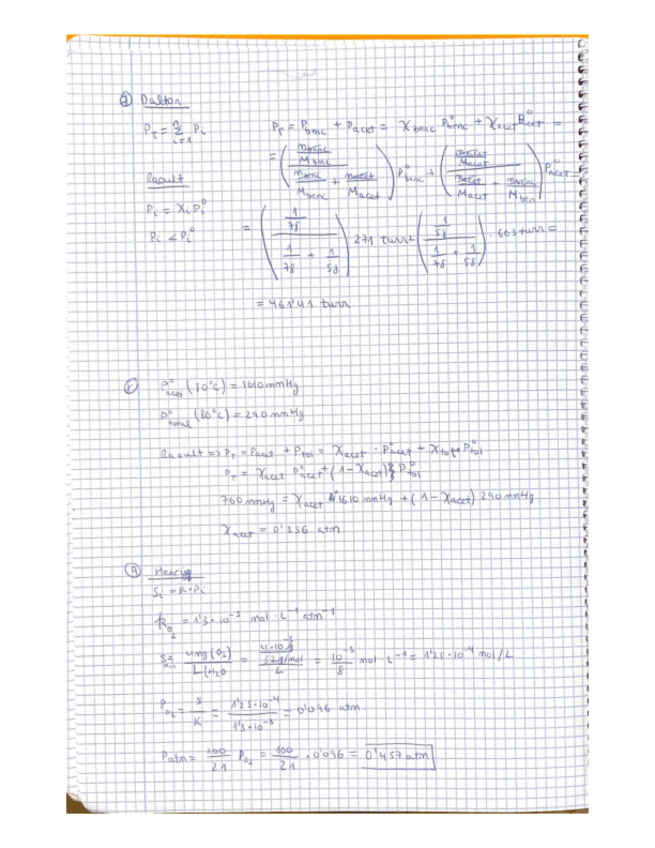 ⑦ Dalton
P_T = Σ_{i=1}^{n} P_i
P_T = P_benc + P_acet = X_benc P°_benc + X_acet P°_acet =
= ( (m_benc / M_benc) / (m_benc / M_benc + m_acet / M_acet) ) P°_benc + ( (m_acet / M_acet) / (m_acet / M_acet + m_benc / M_benc) ) P°_acet
Raoult
P_i = X_i P_i°
P_i < P_i°
= ( (1/78) / (1/78 + 1/58) ) 271 turr + ( (1/58) / (1/78 + 1/58) ) · 603 turr =
= 461'41 turr
⑧ P°_acet (80°c) = 1610 mmHg
P°_tolu (80°c) = 290 mmHg
Raoult => P_T = P_acet + P_tol = X_acet · P°_acet + X_tol · P°_tol
P_T = X_acet P°_acet + (1 - X_acet) P°_tol
760 mmHg = X_acet · 1610 mmHg + (1 - X_acet) 290 mmHg
X_acet = 0'356 atm
⑨ Henry
S_i = K · P_i
k_O2 = 1'3 · 10^-3 mol · L^-1 atm^-1
S = 4mg (O2) / L (H2O = (4·10^-3 g / 32 g/mol) / L = 10^-3 / 8 mol · L^-1 = 1'25 · 10^-4 mol/L
P_O2 = S / K = 1'25·10^-4 / 1'3·10^-3 = 0'096 atm
P_atm = 100/21 P_O2 = 100/21 · 0'096 = 0'457 atm